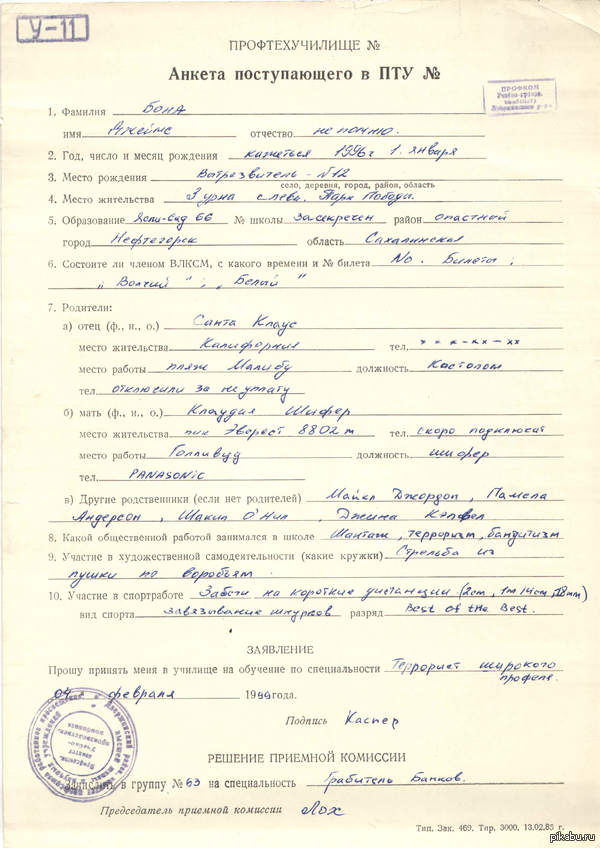 У-11
ПРОФТЕХУЧИЛИЩЕ №
Анкета поступающего в ПТУ №
ПРОФКОМ
1. Фамилия Бонд
имя Джеймс отчество не помню.
2. Год, число и месяц рождения кажеться 1996г 1. января
3. Место рождения Вытрезвитель - №12
село, деревня, город, район, область
4. Место жительства 3 урна слева. Парк Победы.
5. Образование Ясли-сад 66 № школы Засекречен район опастной
город Нефтегорск область Сахалинская
6. Состоите ли членом ВЛКСМ, с какого времени и № билета No. Билеты:
„Волчий"; „Белый"
7. Родители:
а) отец (ф., и., о.) Санта Клаус
место жительства Калифорния тел. х-х-х-хх-хх
место работы пляж Малибу должность Кастолом
тел. отключили за не уплату
б) мать (ф., и., о.) Клаудия Шифер
место жительства пик Эверест 8802m тел. скоро подключат
место работы Голливуд должность шифер
тел. PANASONIC
в) Другие родственники (если нет родителей) Майкл Джордон, Памела
Андерсон, Шакил О'Нил, Джина Кэпвел
8. Какой общественной работой занимался в школе Шантаж, терроризм, бандитизм
9. Участие в художественной самодеятельности (какие кружки) Стрельба из
пушки по воробьям.
10. Участие в спортработе Забеги на короткие дистанции (2cm, 1m 14cm, 18mm)
вид спорта завязывание шнурков разряд Best of the Best.
ЗАЯВЛЕНИЕ
Прошу принять меня в училище на обучение по специальности Террорист широкого
профеля.
04 февраля 1999года.
Подпись Каспер
РЕШЕНИЕ ПРИЕМНОЙ КОМИССИИ
Зачислить в группу № 63 на специальность Грабитель Банков.
Председатель приемной комиссии Лох
Тип. Зак. 469. Тир. 3000. 13.02.85 г.
pikabu.ru